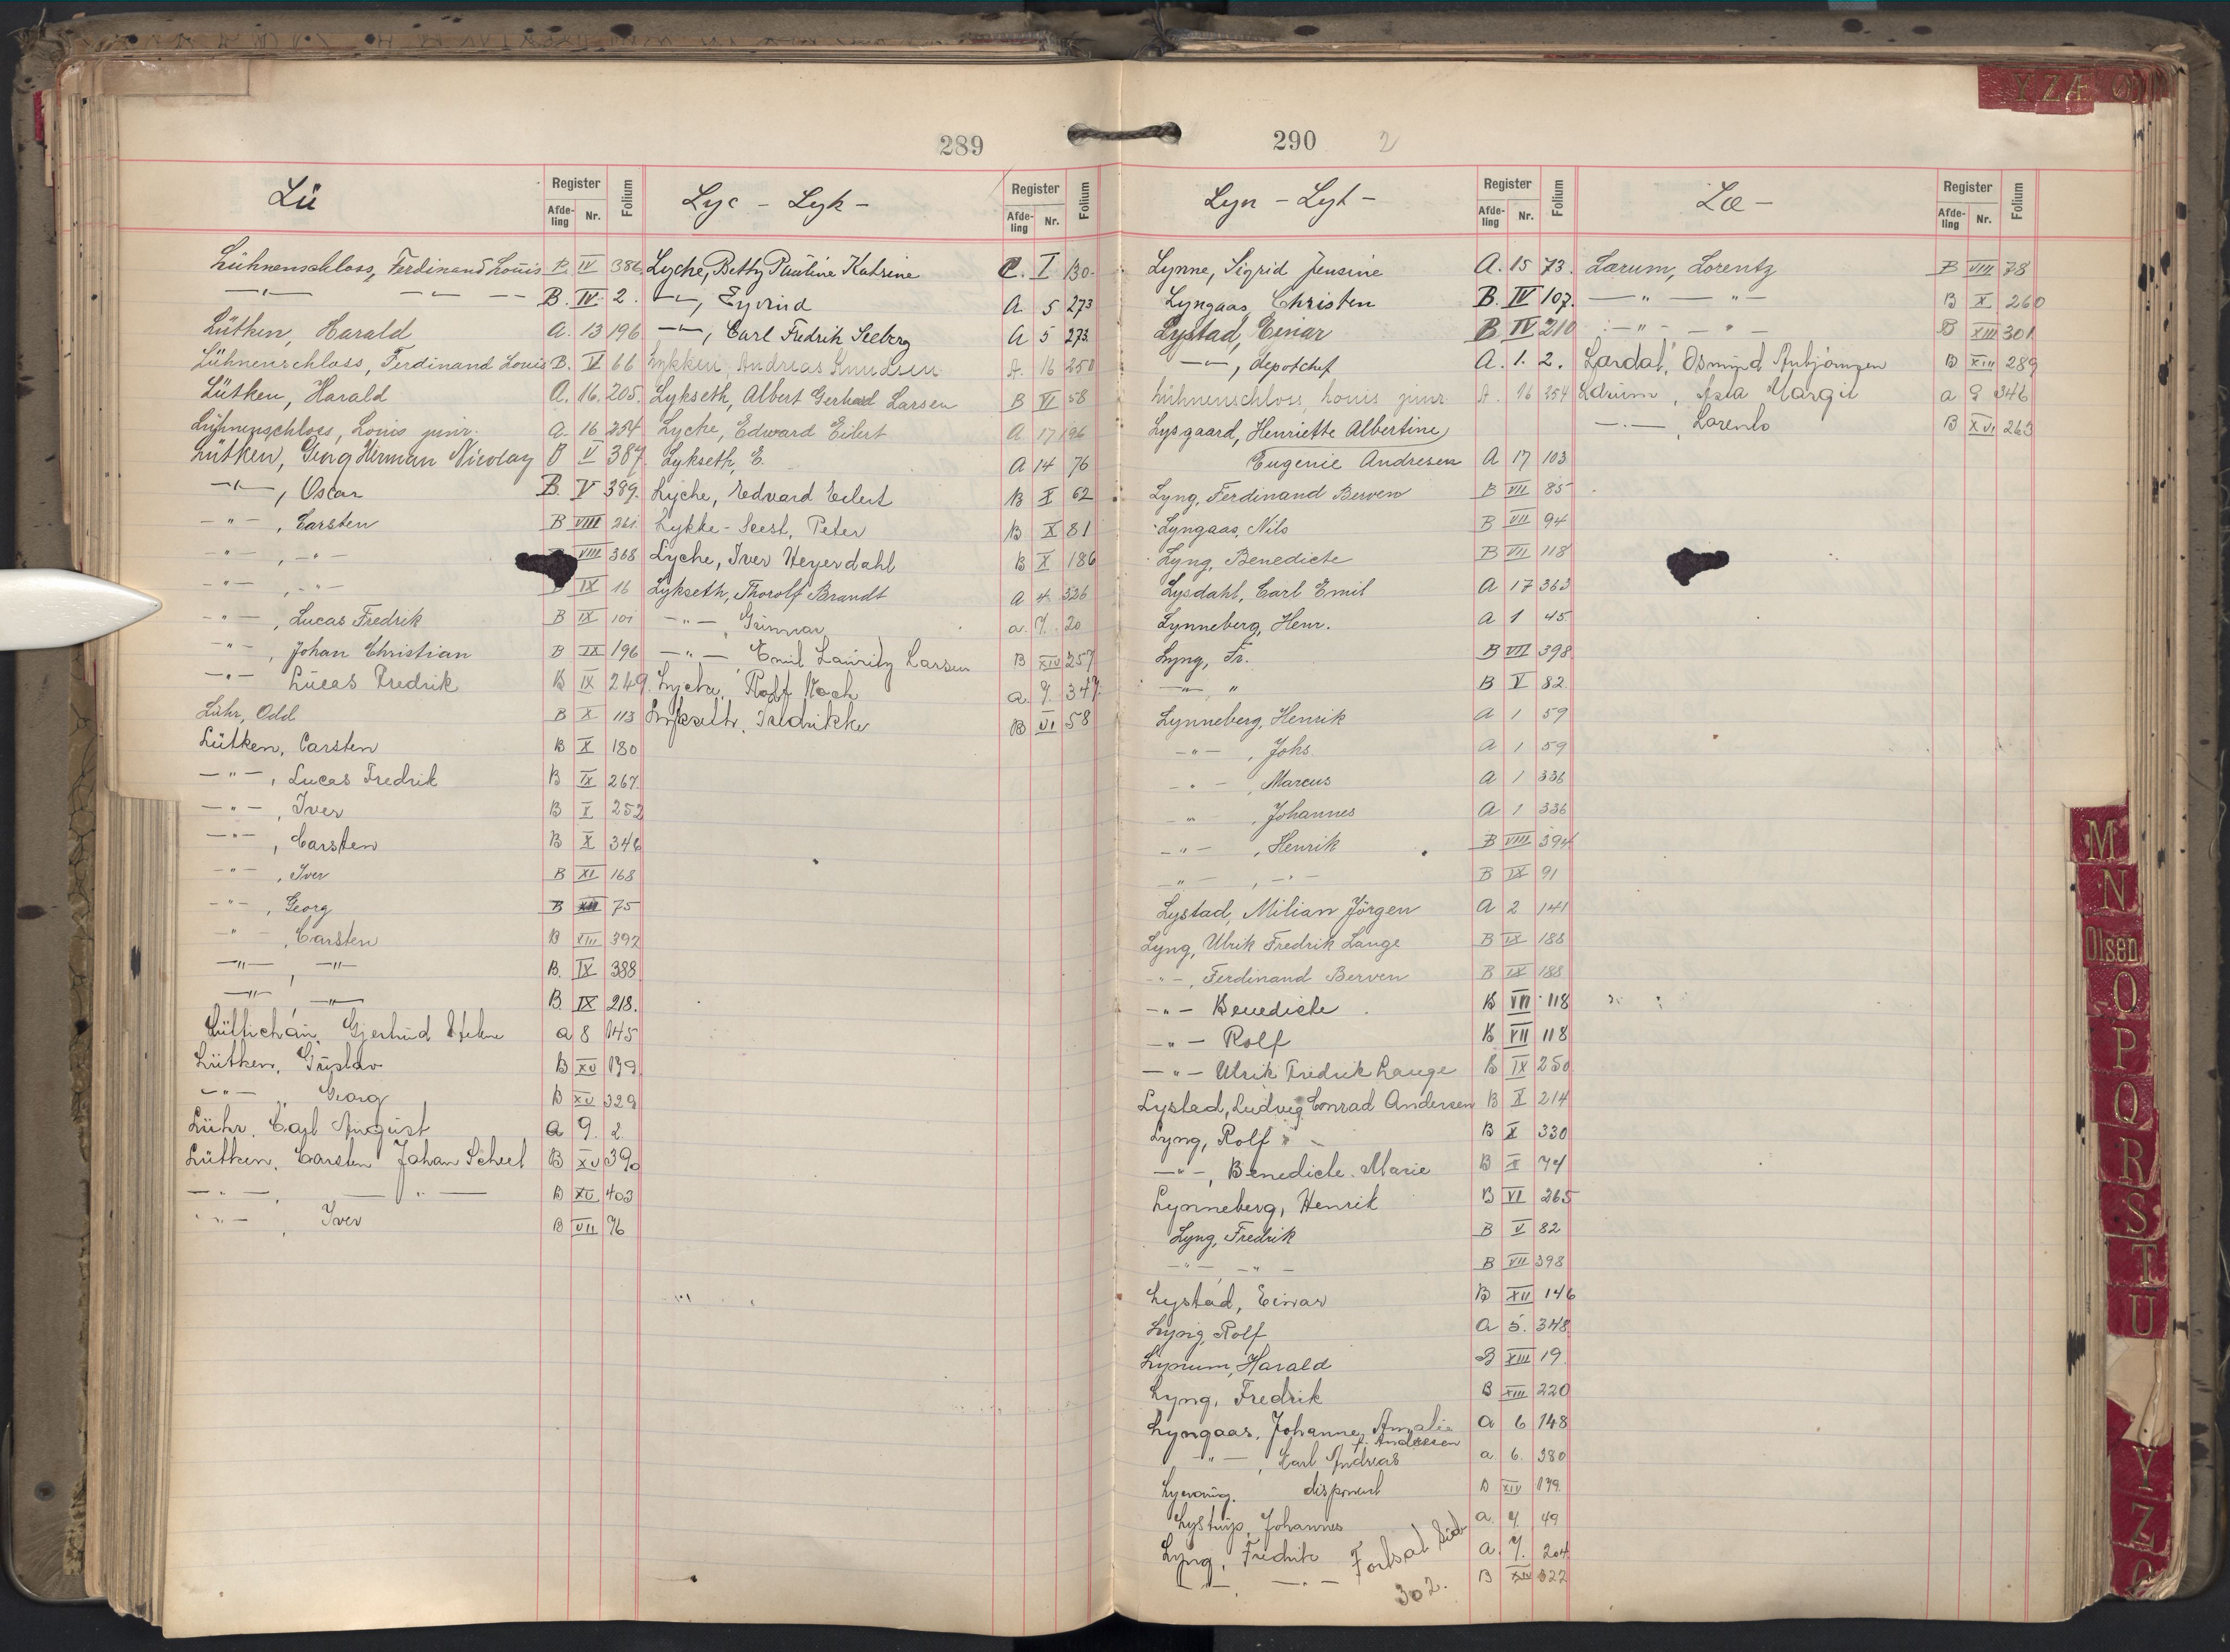 289
Lü
Register
Afde-ling Nr. Folium
Lühnenschloss, Ferdinand Louis B. IV 386
—"— —"— —— B. IV. 2.
Lütken, Harald A. 13 196
Lühnenschloss, Ferdinand Louis B. V 66
Lütken, Harald A. 16. 205.
Lühnenschloss, Louis junr. A. 16. 254
Lütken, Georg Herman Nicolay B V 387.
—"—, Oscar B. V 389.
—"—, Carsten B VIII 261
—"—, —"— VIII 368
—"—, —"— B IX 16
—"—, Lucas Fredrik B IX 101
—"—, Johan Christian B IX 196
—"— Lucas Fredrik B IX 249.
Lühr, Odd B X 113
Lütken, Carsten B X 180
—"—, Lucas Fredrik B IX 267.
—"—, Iver B X 252
—"—, Carsten B X 346
—"—, Iver B XI 168
—"—, Georg B XII 75
—"—, Carsten B XIII 392
—"—, —"— B. IX 388
—"—, —"— B. IX 218.
Gjertrud a 8 145
Lütken, Gustav B XV 139
—"— " Georg B XV 329
Lühr, Carl August a 9. 2.
Lütken, Carsten Johan Scheel B XV 390
—"—, —"— B XV 403
—"—, Iver B VII 76
Lyc - Lyk -
Register
Afde-ling Nr. Folium
Lyche, Betty Pauline Katrine C. I 130.
—"—, Eyvind A 5 273
—"—, Carl Fredrik Seeberg A 5 273.
Lykken, Andreas Knudsen A. 16 250
Lykseth, Albert Gerhard Larsen B VI 58
Lyche, Edward Eilert A 17 196
Lykseth, E. A 14 76
Lyche, Edvard Eilert B X 62
Lykke-Seest, Peter B X 81
Lyche, Iver Heyerdahl B X 186
Lykseth, Thorolf Brandt A 4 326
—"—, Gunnar a. 7. 20
—"—, Emil Lauritz Larsen B XIV 257
Lyche, Rolf Koch a. 7. 347.
Lykseth, Fredrikke B VI 58
290 2
Lyn - Lyt -
Register
Afde-ling Nr. Folium
Lynne, Sigrid Jensine A. 15 73.
Lyngaas, Christen B. IV 107.
Lystad, Einar B IV 210
—"—, depotchef A. 1. 2.
Lühnenschloss, Louis junr. A. 16 254
Lysgaard, Henriette Albertine
Eugenie Andresen A 17 103
Lyng, Ferdinand Berven B VII 85
Lyngaas, Nils B VII 94
Lyng, Benedicte B VII 118
Lysdahl, Carl Emil A 17 363
Lynneberg, Henr. A 1 45
Lyng, Fr. B VII 398
—"— " B V 82
Lynneberg, Henrik A 1 59
—"—, Johs. A 1 59
—"—, Marcus A 1 336
—"—, Johannes A 1 336
—"—, Henrik B VIII 394
—"—, —"— B IX 91
Lystad, Milian Jörgen A 2 141
Lyng, Ulrik Fredrik Lange B IX 188
—"—, Ferdinand Berven B IX 188
—"— Benedicte B VII 118
—"— Rolf B VII 118
—"— Ulrik Fredrik Lange B IX 250
Lystad, Ludvig Conrad Andersen B X 214
Lyng, Rolf B X 330
—"—, Benedicte Marie B X 74
Lynneberg, Henrik B VI 265
Lyng, Fredrik B V 82
—"—, —"— B VII 398
Lystad, Einar B XII 146
Lyng, Rolf A 5. 348
Lynum, Harald B XIII 19
Lyng, Fredrik B XIII 220
Lyngaas, Johanne Amalie a 6 148
f. Andersen
—"—, Karl Andreas a. 6. 380
disponent B XIV 179.
Lystrup, Johannes a. 7. 49
Lyng, Fredrik a. 7. 204
—"—, —"— B XIV 322
Fortsat Side
302.
Læ -
Register
Afde-ling Nr. Folium
Lærum, Lorentz B VIII 78
—"— —"— B X 260
—"— —"— B XIII 301
Lærdal, Osmund B XIII 289
Lærum, Asta Margit a 9 346
—"—, Lorentz B XVI 263
Y Z Æ Ø
M
N
Olsen
O
P
Q
R
S
T
U
Y
Z